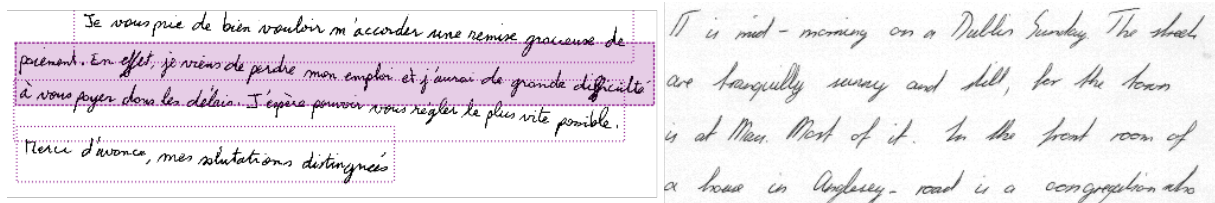 Je vous prie de bien vouloir m'accorder une remise gracieuse de
paiement. En effet, je viens de perdre mon emploi et j'aurai de grande difficulté
à vous payer dans les délais. J'espère pouvoir vous régler le plus vite possible.
Merci d'avance, mes salutations distinguées
IT is mid-morning on a Dublin Sunday. The streets
are tranquilly sunny and still, for the town
is at Mass. Most of it. In the front room of
a house in Anglesey-road is a congregation who